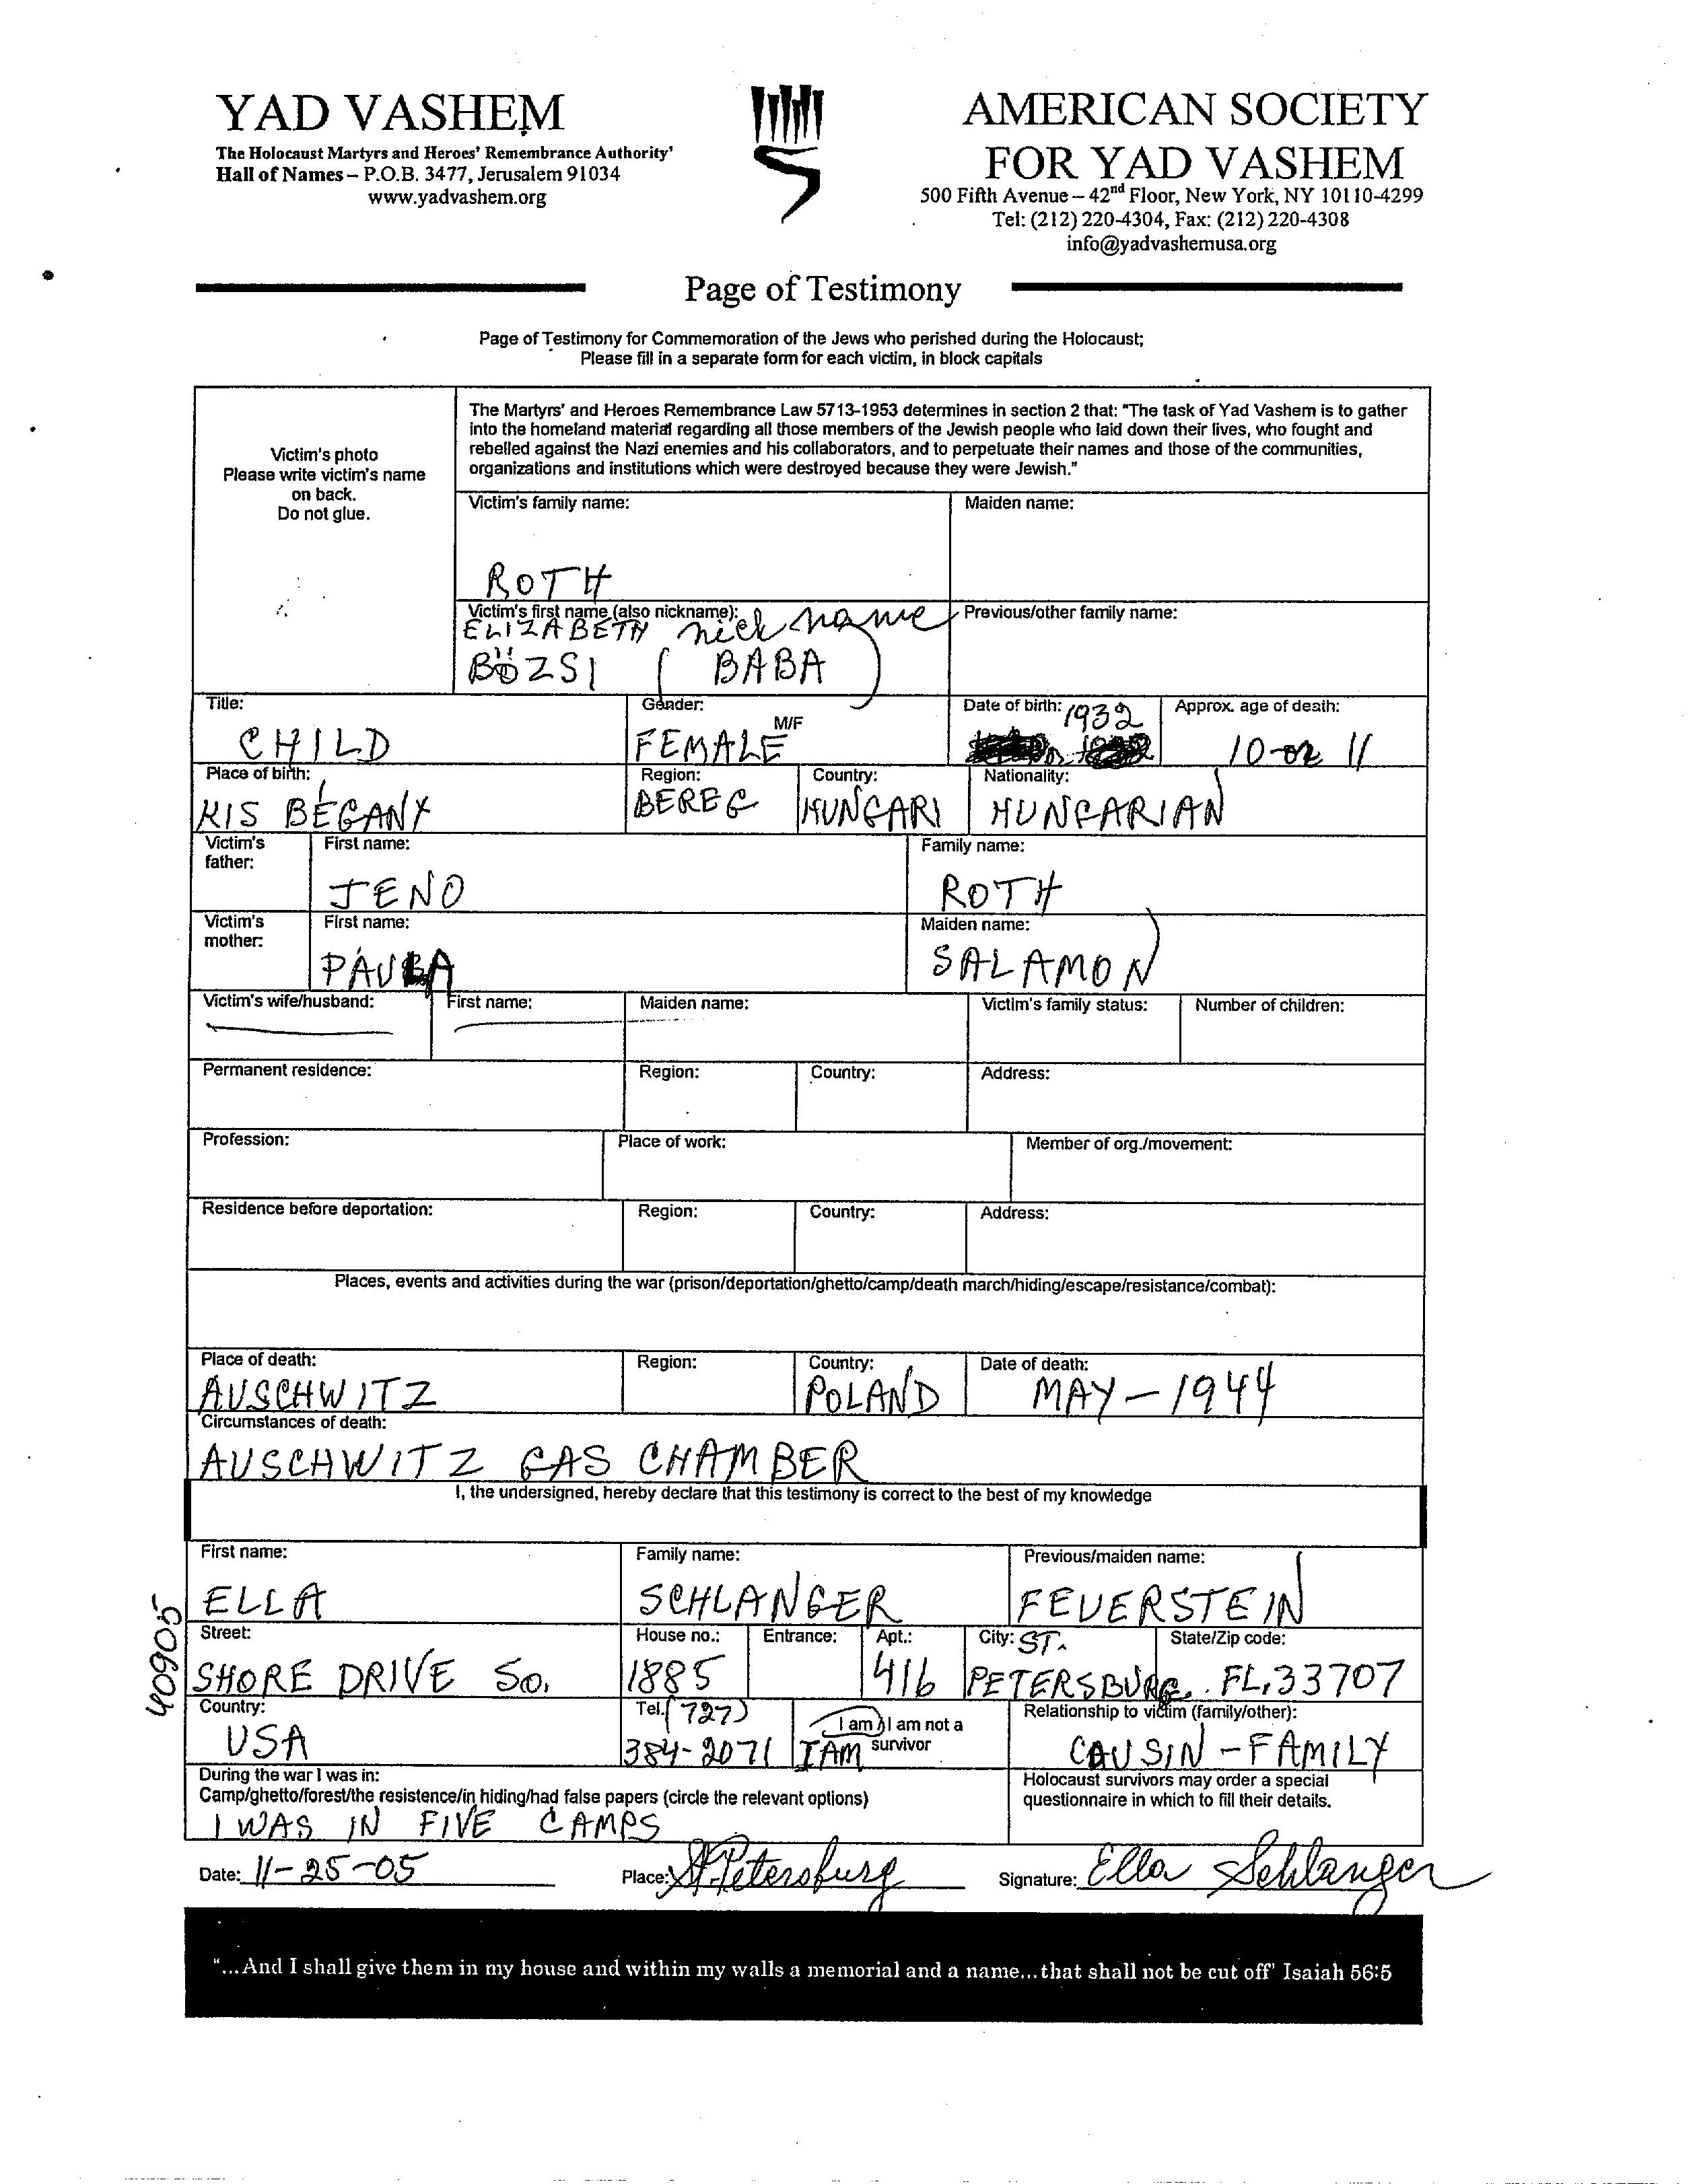 YAD VASHEM
The Holocaust Martyrs and Heroes' Remembrance Authority'
Hall of Names – P.O.B. 3477, Jerusalem 91034
www.yadvashem.org
AMERICAN SOCIETY
FOR YAD VASHEM
500 Fifth Avenue – 42nd Floor, New York, NY 10110-4299
Tel: (212) 220-4304, Fax: (212) 220-4308
info@yadvashemusa.org
Page of Testimony
Page of Testimony for Commemoration of the Jews who perished during the Holocaust;
Please fill in a separate form for each victim, in block capitals
Victim's photo
Please write victim's name
on back.
Do not glue.
The Martyrs' and Heroes Remembrance Law 5713-1953 determines in section 2 that: "The task of Yad Vashem is to gather
into the homeland material regarding all those members of the Jewish people who laid down their lives, who fought and
rebelled against the Nazi enemies and his collaborators, and to perpetuate their names and those of the communities,
organizations and institutions which were destroyed because they were Jewish."
Victim's family name: Maiden name:
ROTH
Victim's first name (also nickname): nick name Previous/other family name:
ELIZABETH
BÖZSI (BABA)
Title: Gender: Date of birth: Approx. age of death:
CHILD FEMALE M/F 1932 10-or 11
Place of birth: Region: Country: Nationality:
KIS BÉGANY BEREG HUNGARI HUNGARIAN
Victim's father: First name: Family name:
JENO ROTH
Victim's mother: First name: Maiden name:
PÁULA SALAMON
Victim's wife/husband: First name: Maiden name: Victim's family status: Number of children:
Permanent residence: Region: Country: Address:
Profession: Place of work: Member of org./movement:
Residence before deportation: Region: Country: Address:
Places, events and activities during the war (prison/deportation/ghetto/camp/death march/hiding/escape/resistance/combat):
Place of death: Region: Country: Date of death:
AUSCHWITZ POLAND MAY – 1944
Circumstances of death:
AUSCHWITZ GAS CHAMBER
I, the undersigned, hereby declare that this testimony is correct to the best of my knowledge
First name: Family name: Previous/maiden name:
ELLA SCHLANGER FEUERSTEIN
40905
Street: House no.: Entrance: Apt.: City: State/Zip code:
SHORE DRIVE So. 1885 416 ST. PETERSBURG. FL, 33707
Country: Tel. I am / I am not a survivor Relationship to victim (family/other):
USA (727) 384-2071 I AM CAUSIN – FAMILY
During the war I was in:
Camp/ghetto/forest/the resistence/in hiding/had false papers (circle the relevant options)
I WAS IN FIVE CAMPS
Holocaust survivors may order a special
questionnaire in which to fill their details.
Date: 11-25-05 Place: St. Petersburg Signature: Ella Schlanger
"...And I shall give them in my house and within my walls a memorial and a name...that shall not be cut off' Isaiah 56:5